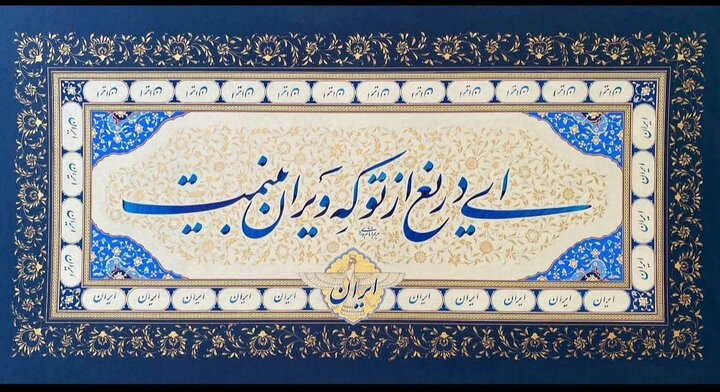 ایران ایران ایران ایران ایران ایران ایران ایران ایران ایران ایران ایران
ایران
ایران
ایران
ایران
ای دریغ از تو که ویران بینمت
ایران
ایران
ایران
ایران
ایران ایران ایران ایران ایران ایران ایران ایران ایران ایران ایران